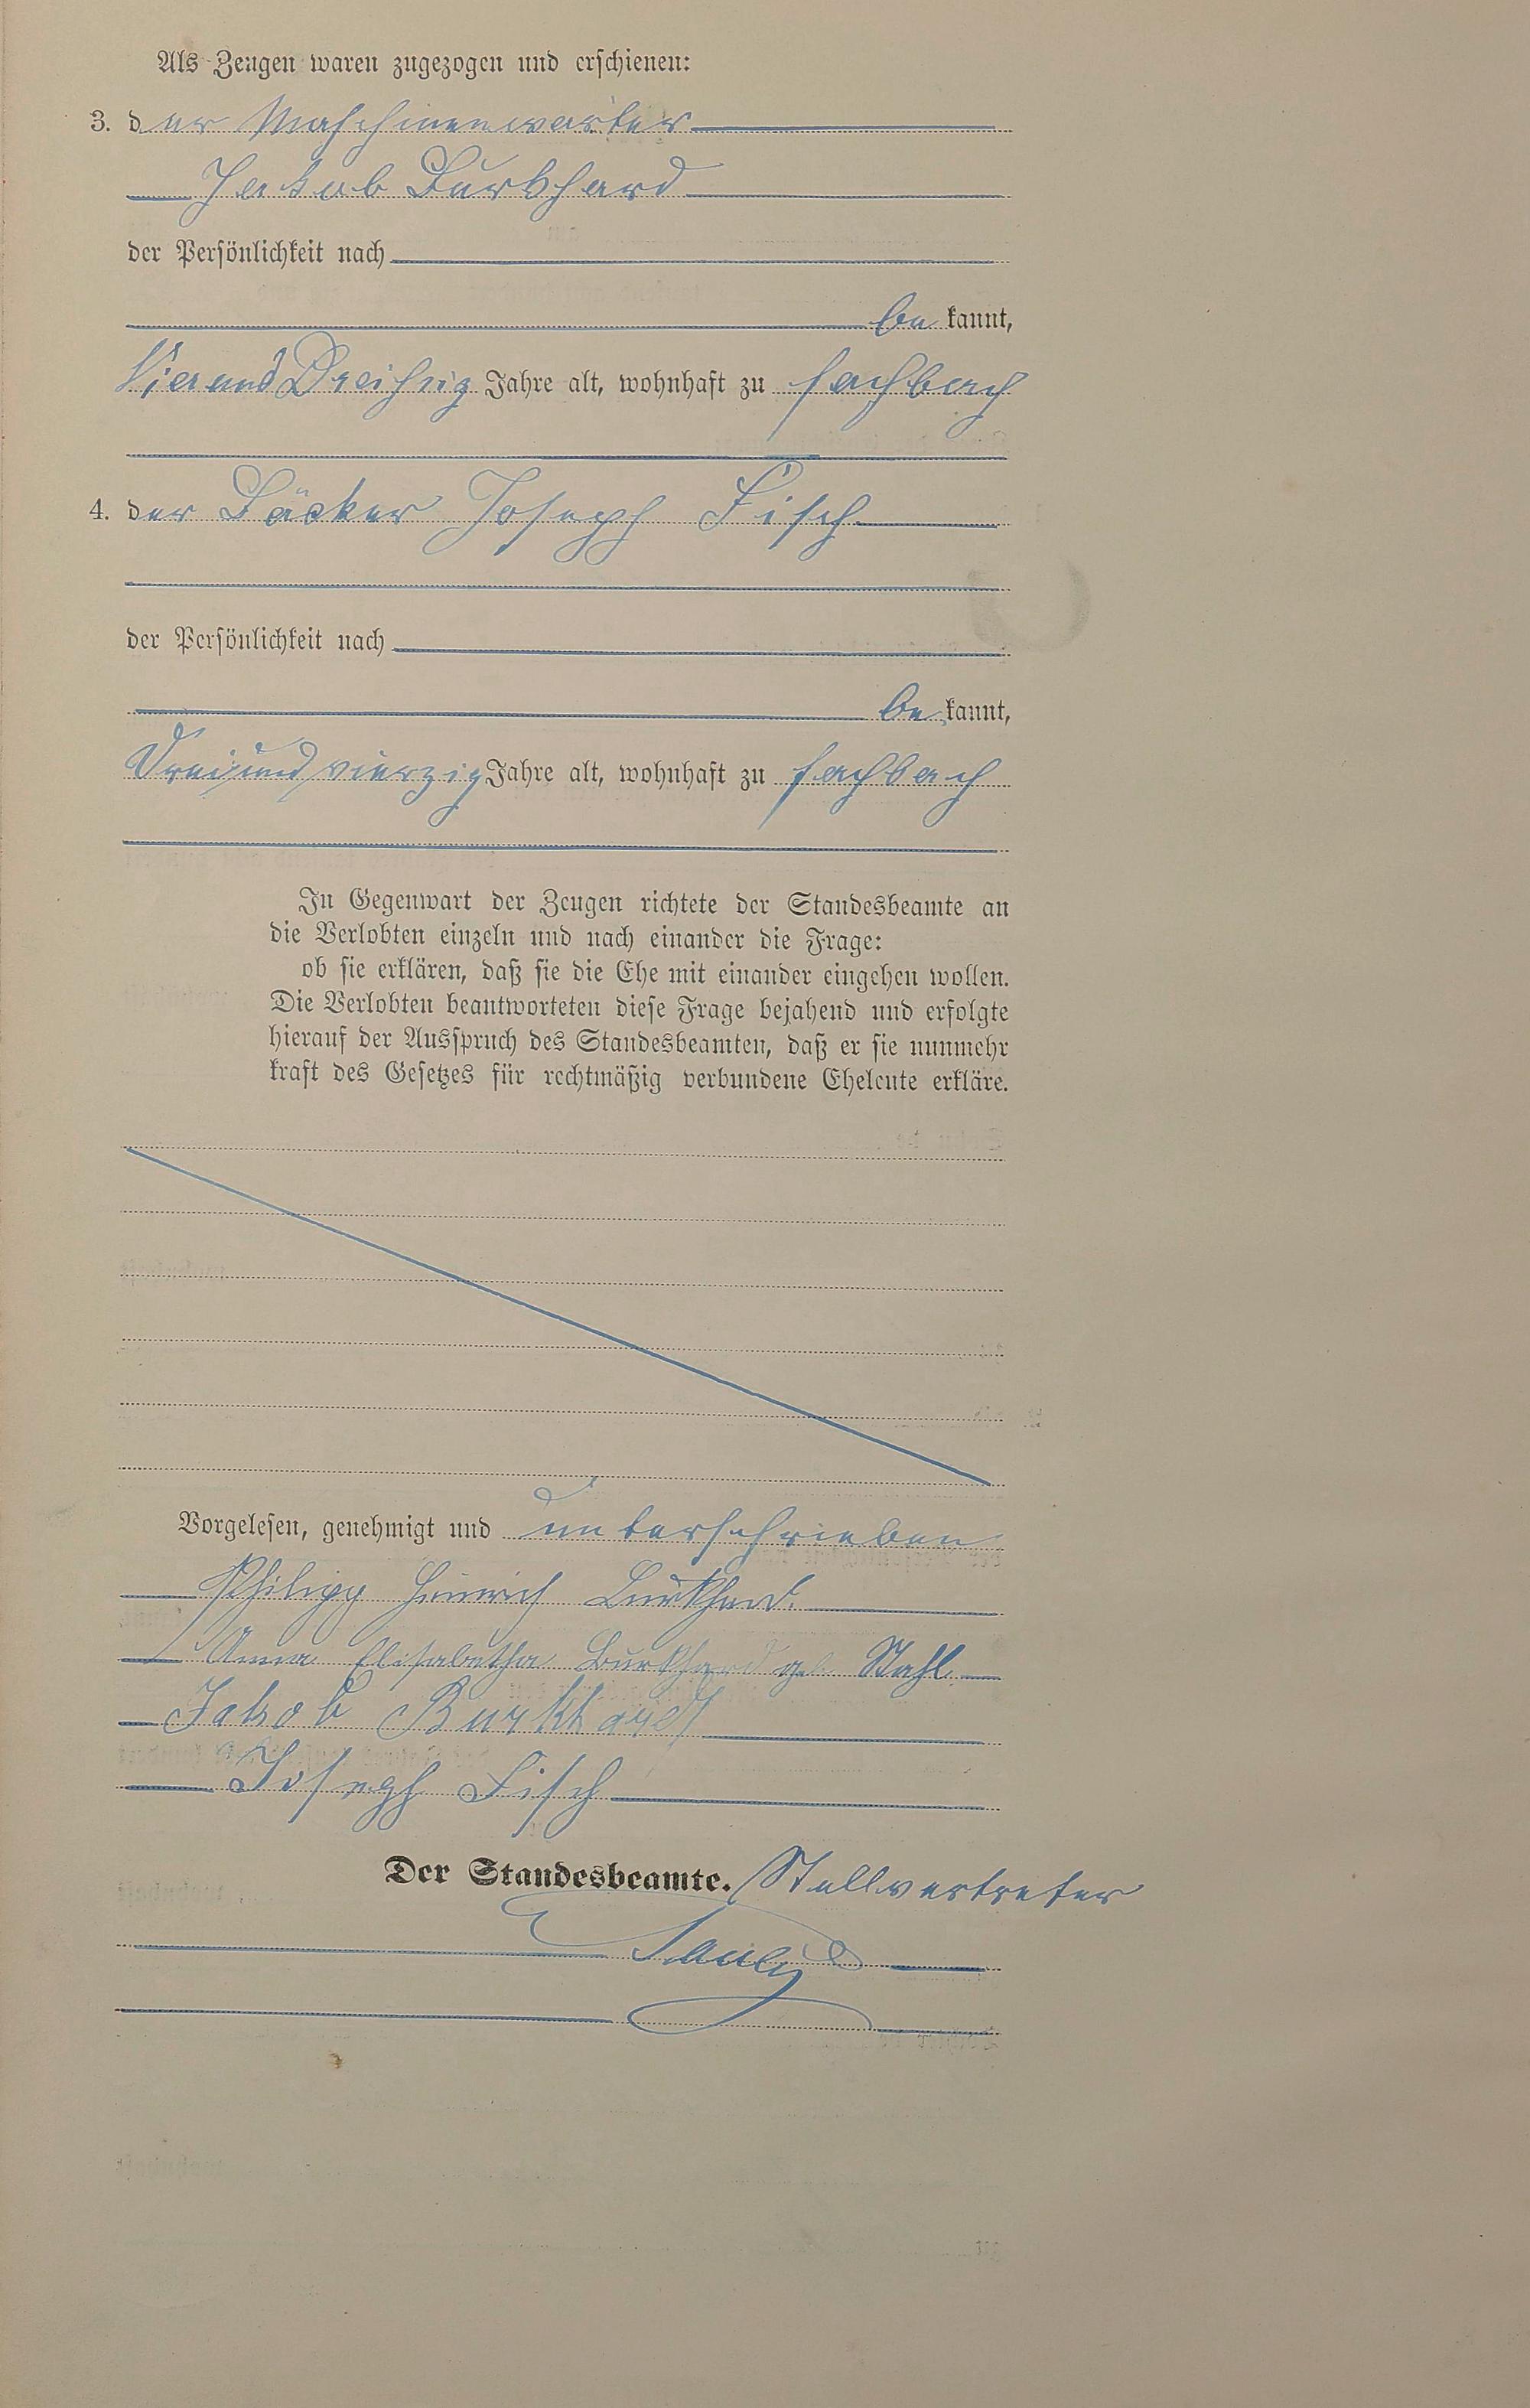 Als Zeugen waren zugezogen und erschienen:
3. der Maschinenwärter
Jakob Burkhard
der Persönlichkeit nach
be kannt,
Vier und Dreißig Jahre alt, wohnhaft zu Fachbach
4. der Bäcker Joseph Fisch
der Persönlichkeit nach
be kannt,
Drei und vierzig Jahre alt, wohnhaft zu Fachbach
In Gegenwart der Zeugen richtete der Standesbeamte an
die Verlobten einzeln und nach einander die Frage:
ob sie erklären, daß sie die Ehe mit einander eingehen wollen.
Die Verlobten beantworteten diese Frage bejahend und erfolgte
hierauf der Ausspruch des Standesbeamten, daß er sie nunmehr
kraft des Gesetzes für rechtmäßig verbundene Eheleute erkläre.
Vorgelesen, genehmigt und unterschrieben
Philipp Heinrich Burkhard.
Anna Elisabetha Burkhard geb. Stahl
Jakob Burkhard
Joseph Fisch
Der Standesbeamte. Stellvertreter